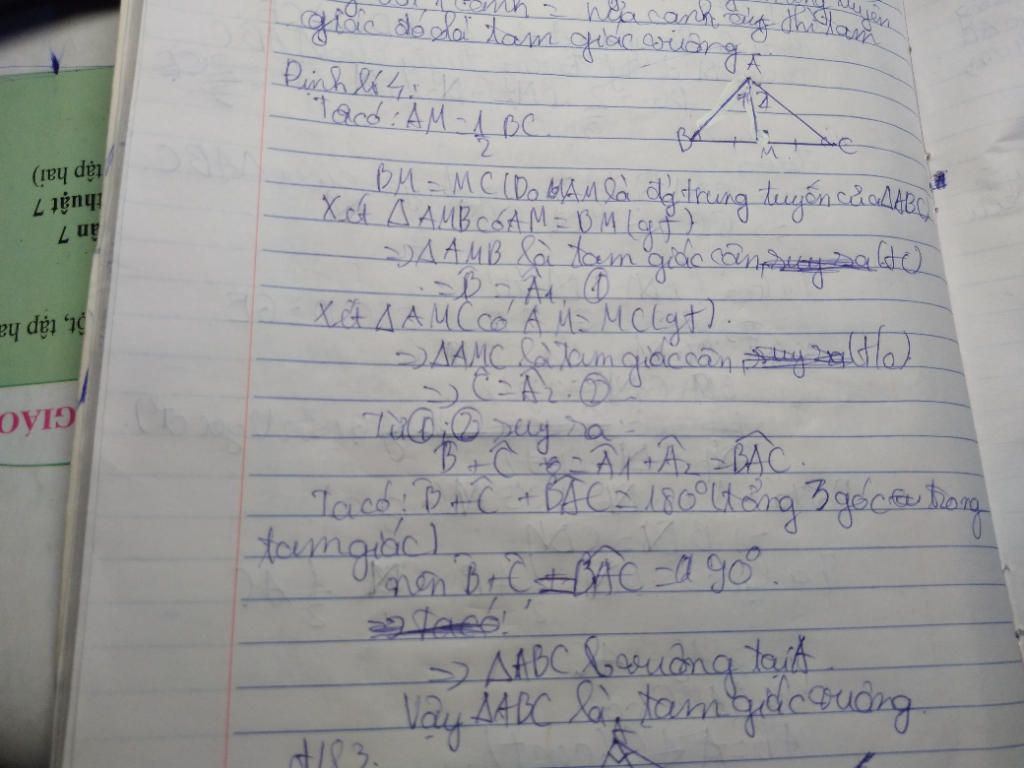 = nửa cạnh ấy thì tam
giác đó là tam giác vuông
A
Định lí 4:
Ta có: AM = 1/2 BC.
1 2
B M C
BM = MC (Do AM là đg trung tuyến của ΔABC)
Xét ΔAMB có AM = BM (gt)
=> ΔAMB là tam giác cân (tc)
= B̂ = Â1. ①
Xét ΔAMC có AM = MC (gt).
=> ΔAMC là tam giác cân (t/c)
=> Ĉ = Â2. ②
Từ ①; ② suy ra:
B̂ + Ĉ = Â1 + Â2 = BAC.
Ta có: B̂ + Ĉ + BAC = 180° (tổng 3 góc trong
tam giác)
nên B̂ + Ĉ = BAC = 90°.
=> Ta có:
=> ΔABC vuông tại A.
Vậy ΔABC là tam giác vuông.
tập hai)
thuật 7
ân 7
ột, tập ha
GIÁO